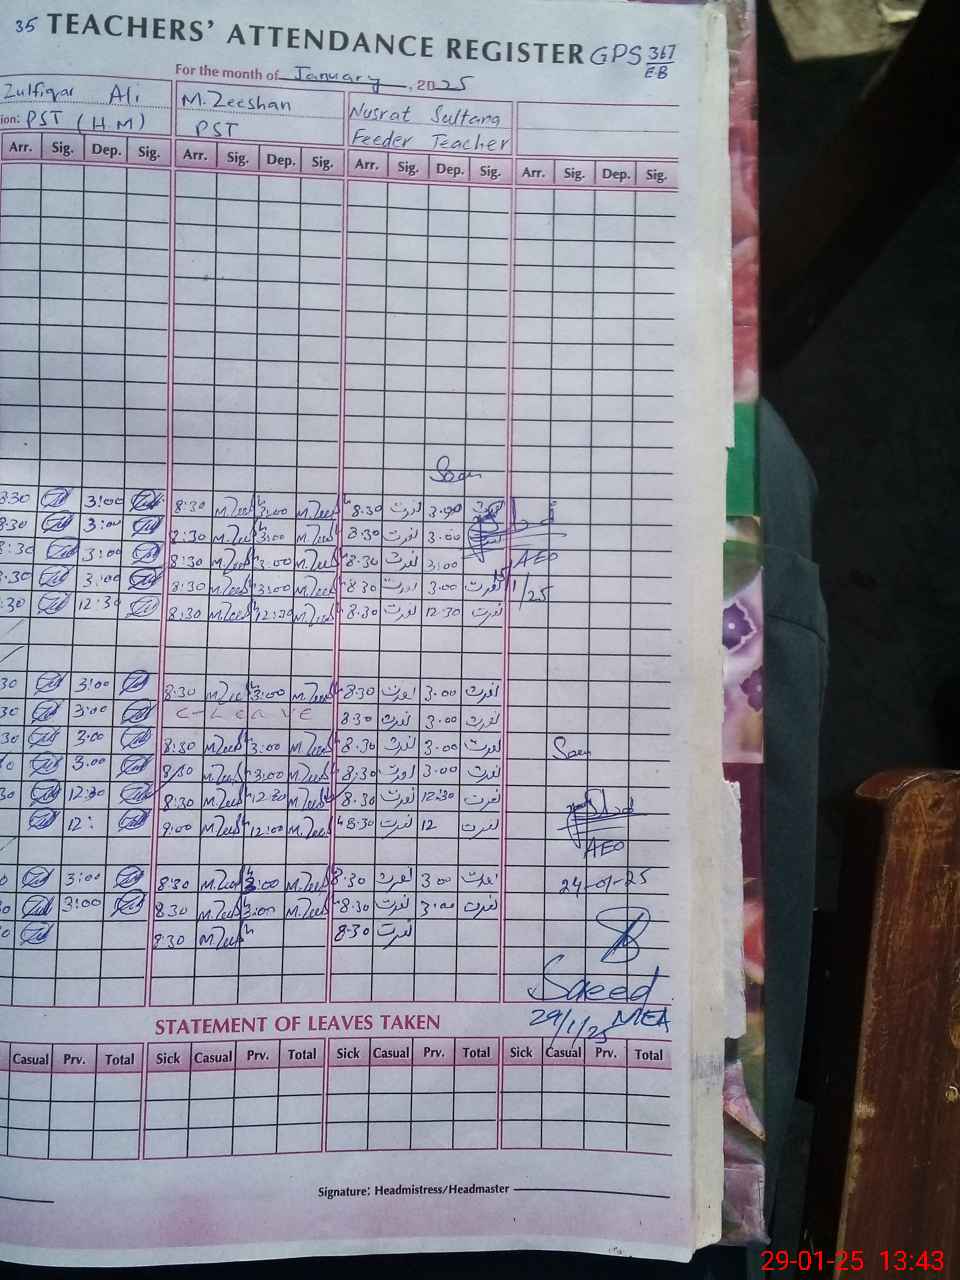 35 TEACHERS' ATTENDANCE REGISTER GPS 367/EB
For the month of January, 2025
Zulfiqar Ali M. Zeeshan Nusrat Sultana
ion: PST (HM) PST Feeder Teacher
Arr. Sig. Dep. Sig. Arr. Sig. Dep. Sig. Arr. Sig. Dep. Sig. Arr. Sig. Dep. Sig.
8:30 3:00 8:30 M.Zeesh 3:00 M.Zeesh 8.30 نصرت 3.00 نصرت
8:30 3:00 8:30 M.Zeesh 3:00 M.Zeesh 8.30 نصرت 3.00
8:30 3:00 8:30 M.Zeesh 3:00 M.Zeesh 8.30 نصرت 3:00 AEO
8:30 3:00 8:30 M.Zeesh 3:00 M.Zeesh 8.30 نصرت 3.00 نصرت 15/1/25
:30 12:30 8:30 M.Zeesh 12:30 M.Zeesh 8.30 نصرت 12.30 نصرت
30 3:00 8:30 M.Zeesh 3:00 M.Zeesh 8.30 نصرت 3.00 نصرت
30 3:00 C-Leave 8.30 نصرت 3.00 نصرت
30 3:00 8:30 M.Zeesh 3:00 M.Zeesh 8.30 نصرت 3.00 نصرت
0 3:00 8:30 M.Zeesh 3:00 M.Zeesh 8:30 نصرت 3.00 نصرت
30 12:30 8:30 M.Zeesh 12:30 M.Zeesh 8.30 نصرت 12:30 نصرت
12: 9:00 M.Zeesh 12:00 M.Zeesh 8.30 نصرت 12 نصرت
AEO
0 3:00 8:30 M.Zeesh 3:00 M.Zeesh 8.30 نصرت 3.00 نصرت 24-01-25
0 3:00 8:30 M.Zeesh 3:00 M.Zeesh 8.30 نصرت 3:00 نصرت
0 8:30 M.Zeesh 8.30 نصرت
Saeed
29/1/25 MEA
STATEMENT OF LEAVES TAKEN
Casual Prv. Total Sick Casual Prv. Total Sick Casual Prv. Total Sick Casual Prv. Total
Signature: Headmistress/Headmaster
29-01-25 13:43